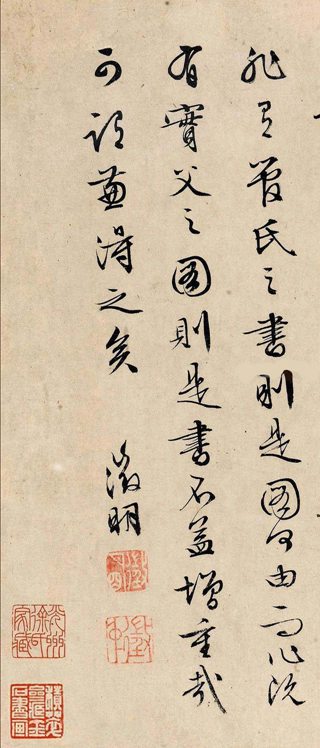 非有管氏之書則是圖何由而作既
有實父之圖則是書不益增重哉
可謂兼得之矣
徵明